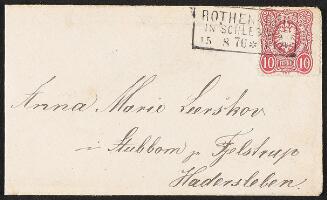 ROTHEN
IN SCHLES
15 8 76*
10 10
Anna Marie Leershov
i Stubbom pr Fjelstrup
Hadersleben.